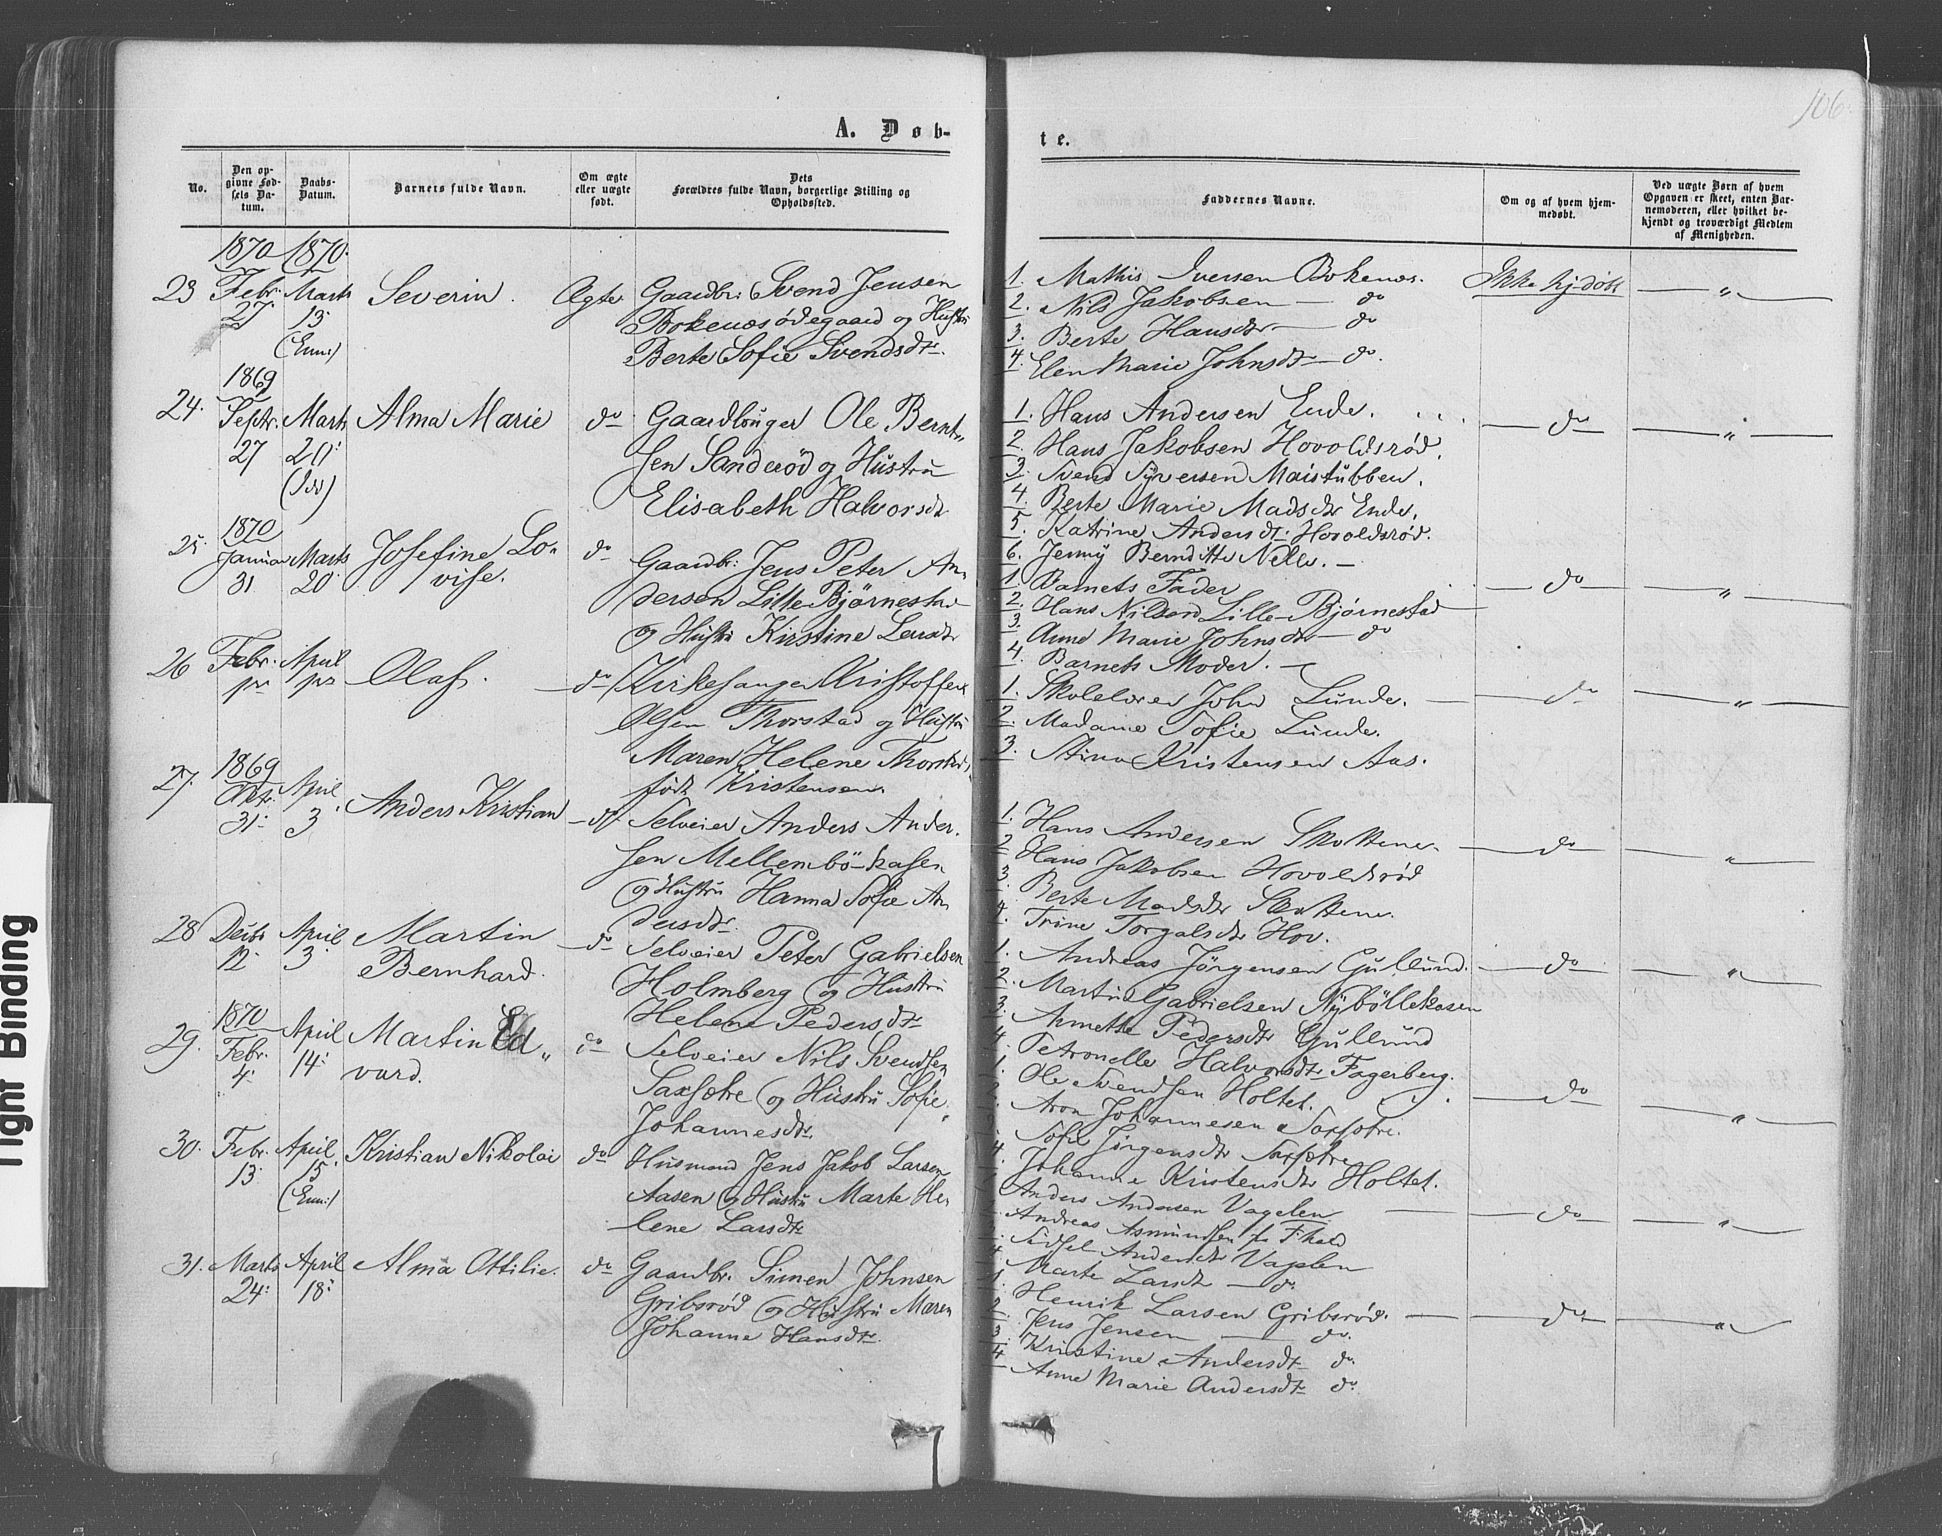 106.
A. Døb-
te.
No.
Den op-
givne Fød-
sels Da-
tum.
Daabs-
Datum.
Barnets fulde Navn.
Om ægte
eller uægte
født.
Dets
Forældres fulde Navn, borgerlige Stilling og
Opholdssted.
Faddernes Navne.
Om og af hvem hjem-
medøbt.
Ved uægte Børn af hvem
Opgaven er skeet, enten Bar-
nemoderen, eller hvilket be-
kjendt og troværdigt Medlem
af Menigheden.
1870 1870.
23 Febr. Marts Severin. Ægte Gaardbr: Svend Jensen
27. 13. Bokenæsødegaard og Hustru
(Enn:) Berte Sofie Svendsdtr.
1. Mathis Iversen Bokenæs. Ikke hjdøbt — " —
2. Nils Jakobsen — do
3. Berte Hansdtr — do
4. Elen Marie Johnsdtr — do.
1869
24. Septr. Marts Alma Marie do Gaardbruger Ole Bernt-
27 20. sen Sanderød og Hustru
(Idd) Elisabeth Halvorsdtr
1. Hans Andersen Ende. — do — " —
2. Hans Jakobsen Hovoldsrød.
3. Svend Syversen Maistubben.
4. Berte Marie Madsdtr Ende.
5. Katrine Andersdt: Hovoldsrød.
6. Jenny Bernditte Nells. —
1870
25. Januar Marts Josefine Lo- do Gaardbr: Jens Peter An-
31 20. vise. dersen Lille Bjørnestad
og Hustru Kirstine Larsdtr
1. Barnets Fader — do — " —
2. Hans Nilsen Lille-Bjørnestad
3. Anne Marie Johnsdtr — do
4. Barnets Moder. —
26 Febr. April Olaf. — do Kirkesanger Kristoffer
Olsen Thorstad og Hustru
Maren Helene Thorstad,
født Kristensen.
1. Skolelærer John Lunde. — do — " —
2. Madame Sofie Lunde.
3. Stina Kristensen Aas.
1869
27. Oktr. April Anders Kristian — do Selveier Anders Ander-
31. 3. sen Mellembø-kasen
og Hustru Hanna Sofie An-
dersdtr.
1. Hans Andersen Skottene — do — " —
2. Hans Jakobsen Hovoldsrød
3. Berte Madsdtr Skottene
4. Trine Torgalsdtr Hov.
28 Decbr April Martin — do Selveier Peter Gabrielsen
12 3 Bernhard. Holmberg og Hustru
Helene Pedersdtr
1. Andreas Jörgensen Gullund. — do — " —
2. Martin Gabrielsen Nybøllekasen
3. Annette Pedersdtr Gullund
4. Petronelle Halvorsdtr Fagerberg.
1870
29. Febr. April Martin Ed- do Selveier Nils Svendsen
4. 14. vard. Saxsætre og Hustru Sofie
Johannesdtr.
1. Ole Svendsen Holtet. — do — " —
2. Aron Johannesen Saxsætre.
Sofie Jörgensdtr Saxsætre
4. Johanne Kristensdtr Holtet.
30. Febr. April Kristian Nikolai do Husmand Jens Jakob Larsen
13. 15 Aasen og Hustru Marte He-
(Enn:) lene Larsdtr
Anders Andersen Vagelen — do — " —
Andreas Asmundsen fr Fhald
Sidsel Andersdtr Vagelen
4. Marte Larsdt — do.
31. Marts April Alma Attilie. do Gaardbr. Simen Johnsen
24. 18. Gribsrød og Hustru Maren
Johanne Hansdtr.
1. Henrik Larsen Gribsrød. — do — " —
2. Jens Jensen — do.
3. Kristine Andersdtr do.
4. Anne Marie Andersdtr do.
Tight Binding